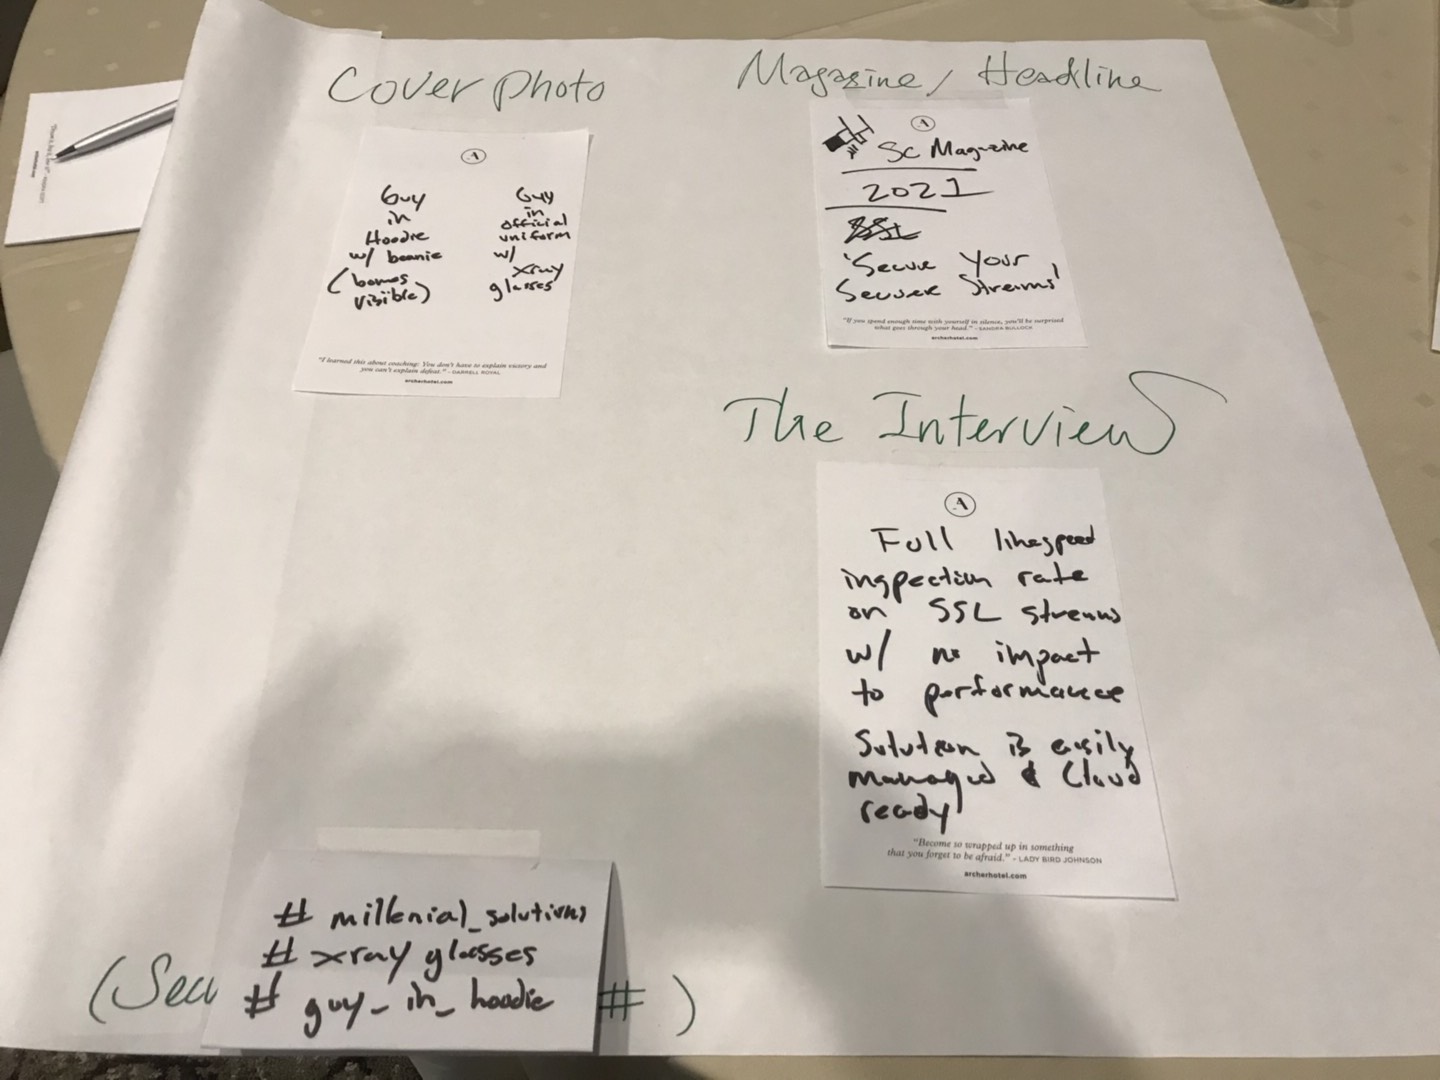 Cover Photo
Guy
in
Hoodie
w/ beanie
(bones
visible)
Guy
in
official
uniform
w/
xray
glasses
"I learned this about coaching: You don't have to explain victory and
you can't explain defeat." - DARRELL ROYAL
archerhotel.com
Magazine/Headline
A
SC Magazine
2021
'Secure Your
Secure Streams'
"If you spend enough time with yourself in silence, you'll be surprised
what goes through your head." - SANDRA BULLOCK
archerhotel.com
The Interview
A
Full linespeed
inspection rate
on SSL streams
w/ no impact
to performance
Solution is easily
managed & Cloud
ready
"Become so wrapped up in something
that you forget to be afraid." - LADY BIRD JOHNSON
archerhotel.com
# millenial_solutions
# xray glasses
# guy_in_hoodie
(Secu
#)